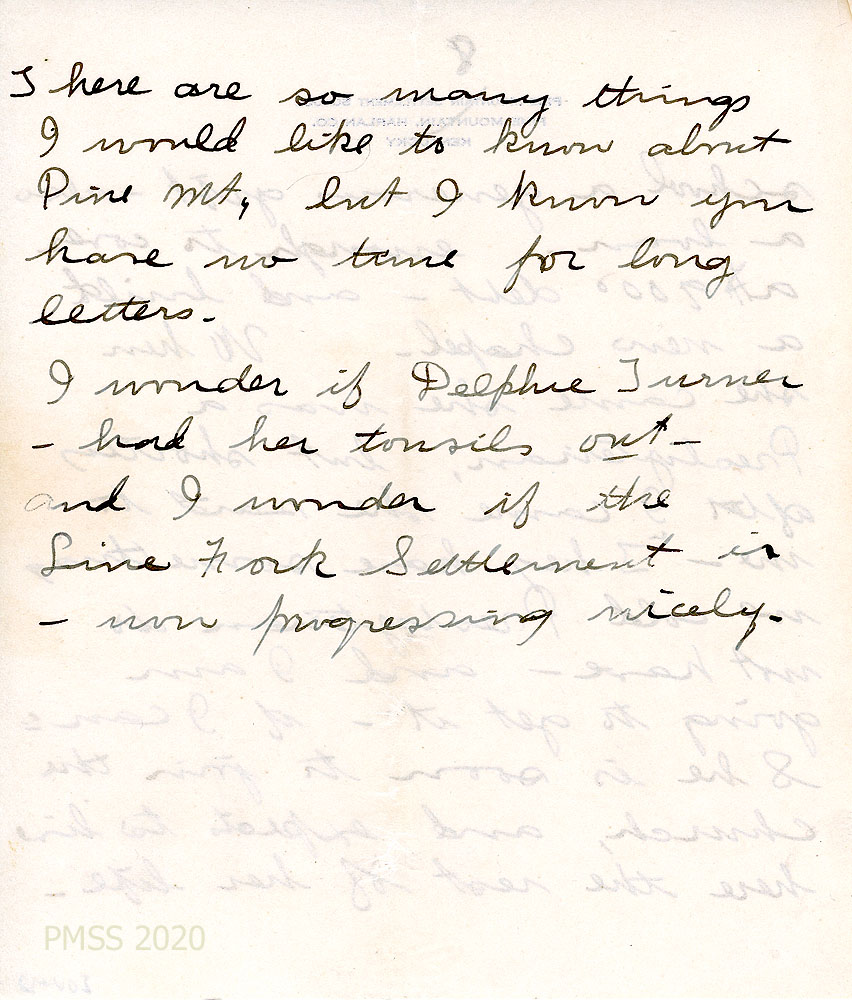 There are so many things
I would like to know about
Pine Mt, but I know you
have no time for long
letters.
I wonder if Delphie Turner
- had her tonsils out -
and I wonder if the
Line Fork Settlement is
- now progressing nicely.
PMSS 2020